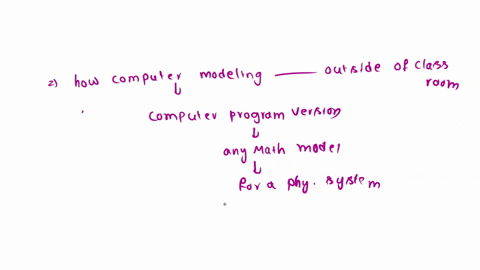 2) how computer modeling — outside of class
room
computer program version
any Math model
for a phy. system